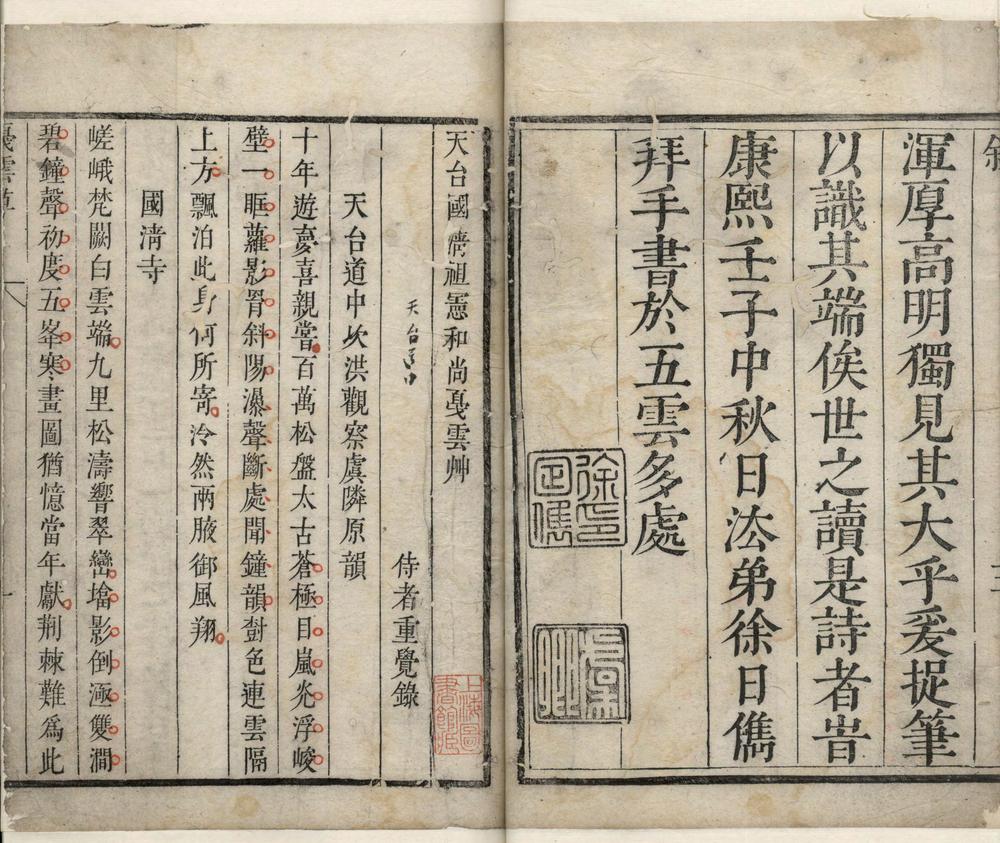 渾厚高明獨見其大乎爰捉筆
以識其端俟世之讀是詩者旹
康熙壬子中秋日法弟徐日儁
拜手書於五雲多處
徐印
日儁
天台國清祖憲和尚戞雲艸
侍者重覺錄
天台道中次洪觀察虞隣原韻
十年遊夣喜親嘗百萬松盤太古蒼極目嵐光浮峻
壁一眶蘿影罥斜陽瀑聲斷處聞鐘韻對色連雲隔
上方飄泊此身何所寄泠然兩腋御風翔
國淸寺
嵯峨梵闕白雲端九里松濤響翠巒塔影倒凾雙澗
碧鐘聲初度五峯寒畫圖猶憶當年獻荆棘難爲此
上海圖
書館藏